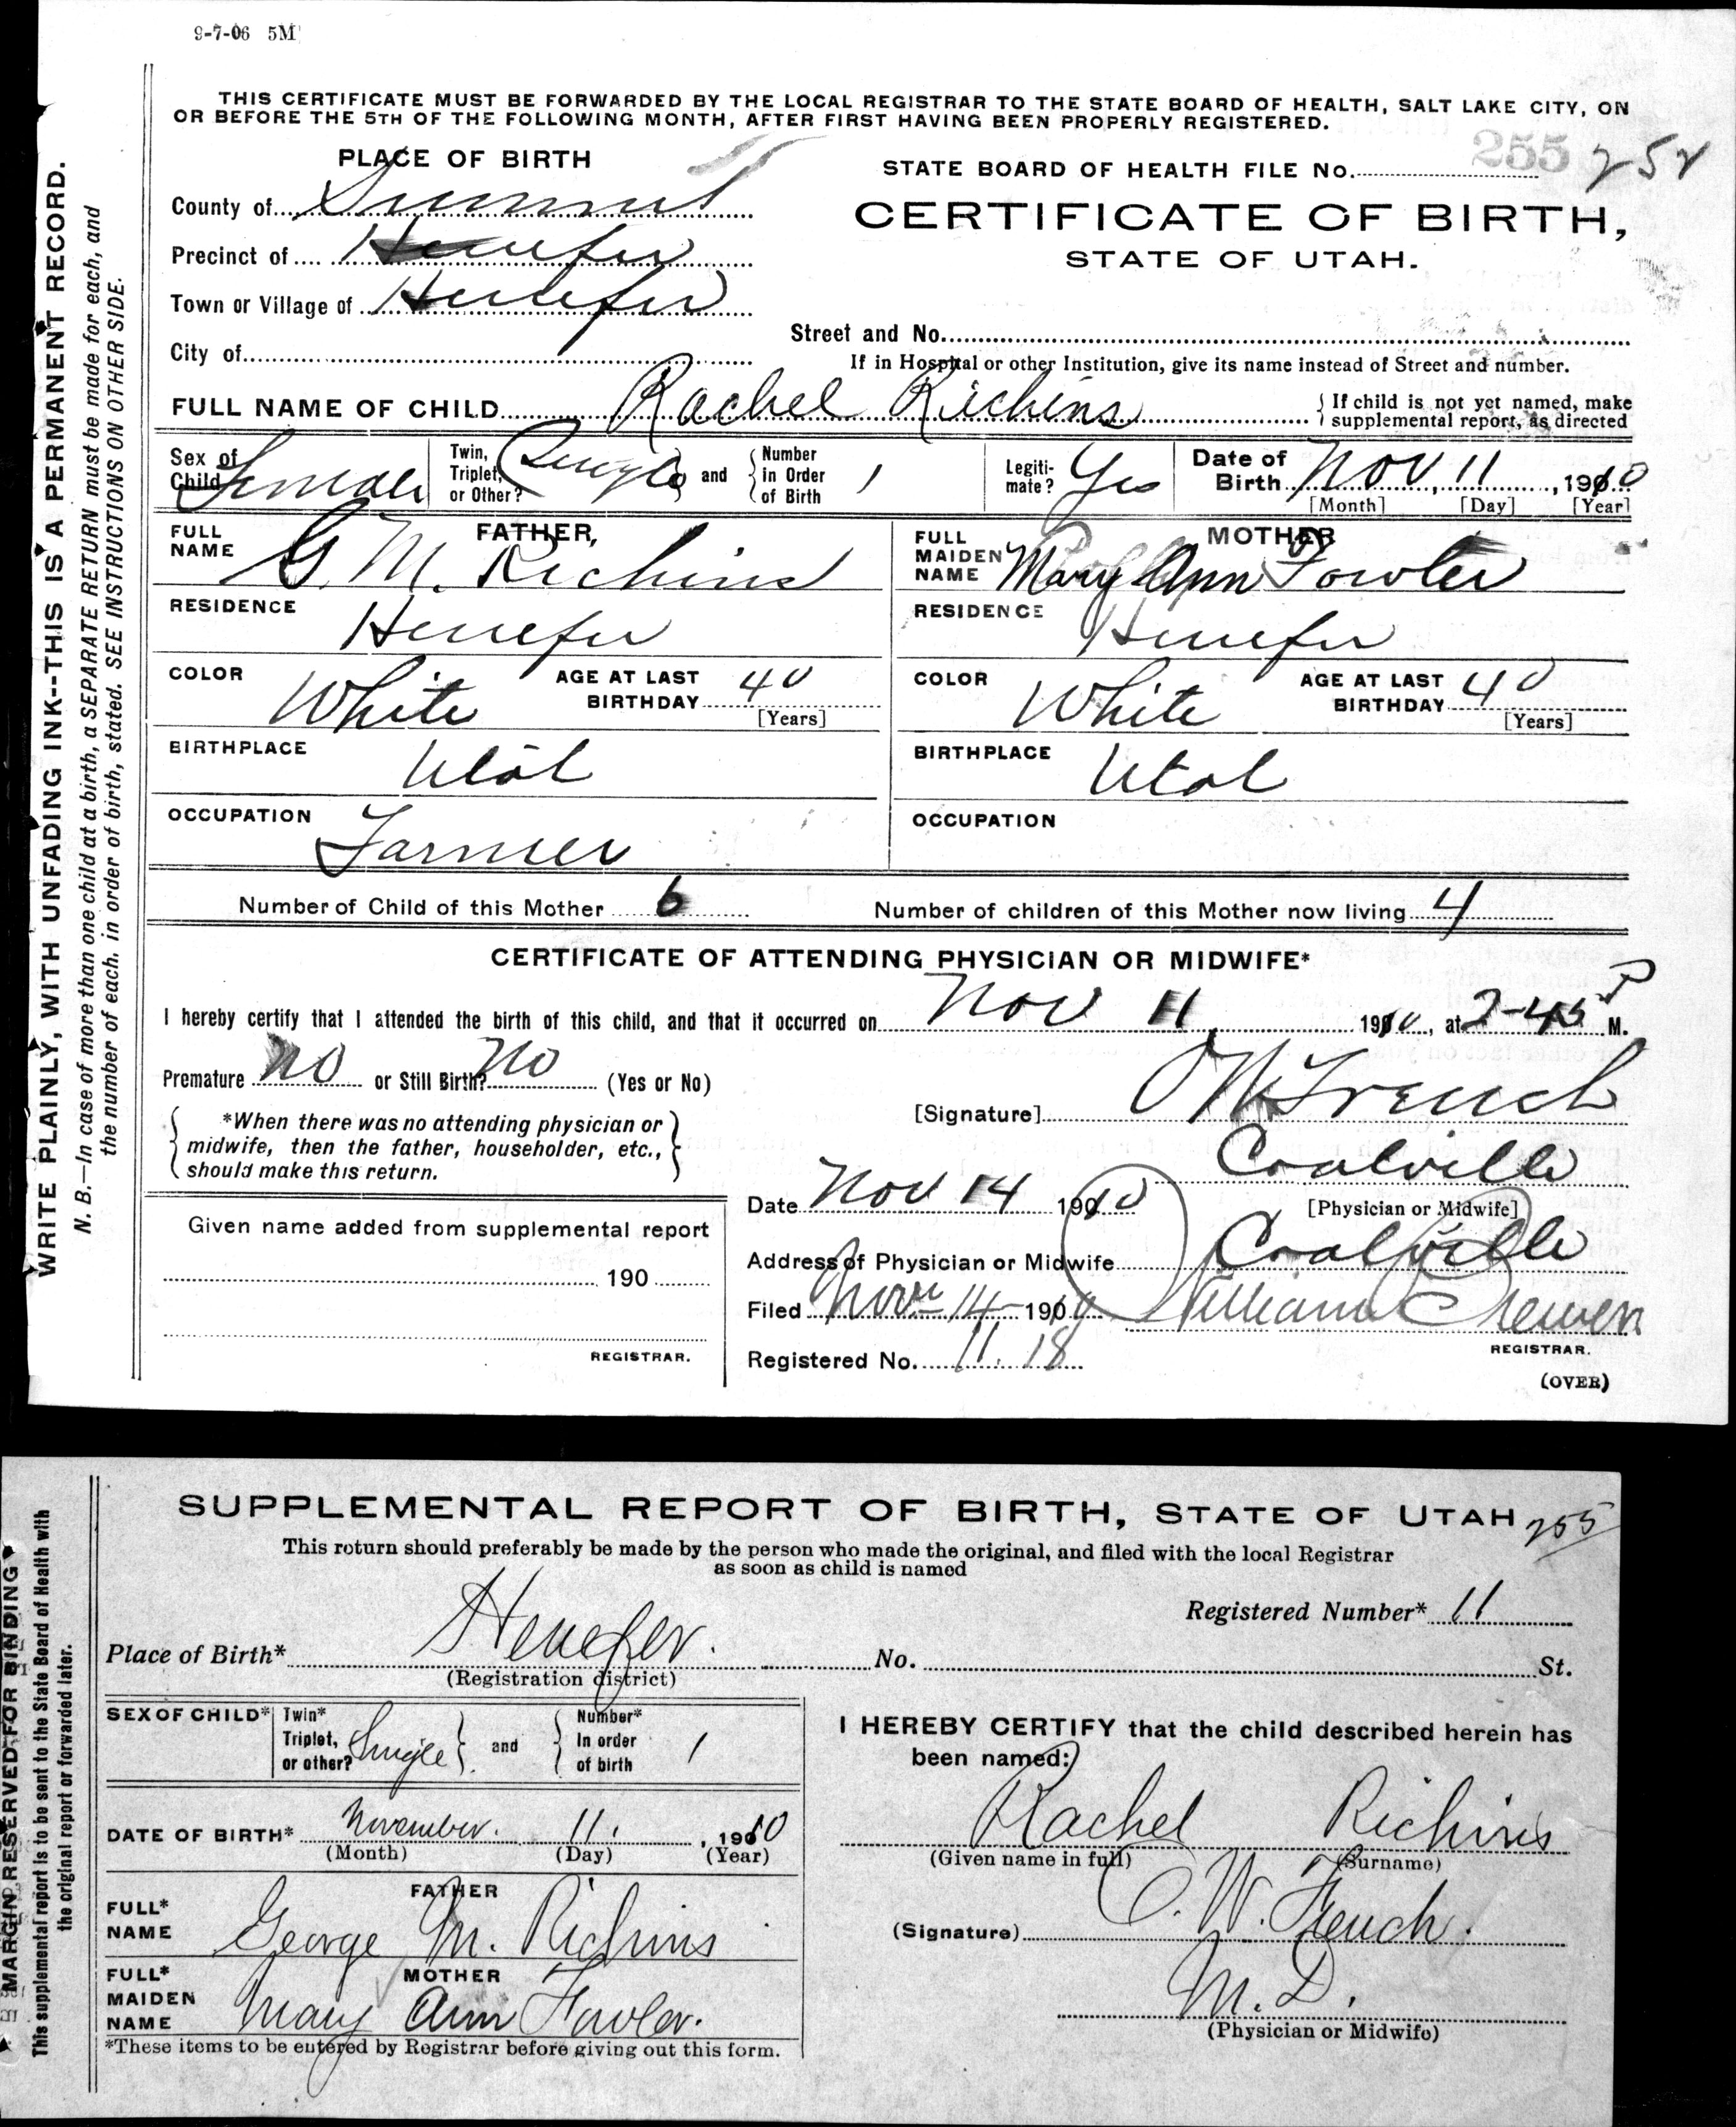 9-7-06 5M
THIS CERTIFICATE MUST BE FORWARDED BY THE LOCAL REGISTRAR TO THE STATE BOARD OF HEALTH, SALT LAKE CITY, ON
OR BEFORE THE 5TH OF THE FOLLOWING MONTH, AFTER FIRST HAVING BEEN PROPERLY REGISTERED.
WRITE PLAINLY, WITH UNFADING INK--THIS IS A PERMANENT RECORD.
N. B.—In case of more than one child at a birth, a SEPARATE RETURN must be made for each, and
the number of each, in order of birth, stated. SEE INSTRUCTIONS ON OTHER SIDE.
PLACE OF BIRTH
County of Summit
Precinct of Henefer
Town or Village of Henefer
City of
STATE BOARD OF HEALTH FILE No. 255 252
CERTIFICATE OF BIRTH,
STATE OF UTAH.
Street and No.
If in Hospital or other Institution, give its name instead of Street and number.
FULL NAME OF CHILD Rachel Richins
If child is not yet named, make
supplemental report, as directed
Sex of Child Female
Twin, Triplet, or Other? Single and Number in Order of Birth 1
Legitimate? Yes
Date of Birth Nov, 11, 1910
[Month] [Day] [Year]
FATHER,
FULL NAME G. M. Richins
RESIDENCE Henefer
COLOR White AGE AT LAST BIRTHDAY 40 [Years]
BIRTHPLACE Utah
OCCUPATION Farmer
MOTHER
FULL MAIDEN NAME Mary Ann Fowler
RESIDENCE Henefer
COLOR White AGE AT LAST BIRTHDAY 40 [Years]
BIRTHPLACE Utah
OCCUPATION
Number of Child of this Mother 6 Number of children of this Mother now living 4
CERTIFICATE OF ATTENDING PHYSICIAN OR MIDWIFE*
I hereby certify that I attended the birth of this child, and that it occurred on Nov 11 1910, at 2-45 P M.
Premature No or Still Birth? No (Yes or No)
*When there was no attending physician or
midwife, then the father, householder, etc.,
should make this return.
[Signature] O W French
Coalville
[Physician or Midwife]
Date Nov 14 1910
Address of Physician or Midwife Coalville
Filed Nov 14 1910 William
REGISTRAR.
Registered No. 11. 18
(OVER)
Given name added from supplemental report
190
REGISTRAR.
SUPPLEMENTAL REPORT OF BIRTH, STATE OF UTAH 255
This return should preferably be made by the person who made the original, and filed with the local Registrar
as soon as child is named
MARGIN RESERVED FOR BINDING
This supplemental report is to be sent to the State Board of Health with
the original report or forwarded later.
Registered Number* 11
Place of Birth* Henefer. No. St.
(Registration district)
SEX OF CHILD*
Twin* Triplet, or other? Single and Number* In order of birth 1
DATE OF BIRTH* November. 11. , 1910
(Month) (Day) (Year)
FATHER
FULL* NAME George M. Richins
MOTHER
FULL* MAIDEN NAME Mary Ann Fowler.
*These items to be entered by Registrar before giving out this form.
I HEREBY CERTIFY that the child described herein has
been named:
Rachel Richins
(Given name in full) (Surname)
(Signature) O. W. French.
M. D.
(Physician or Midwife)